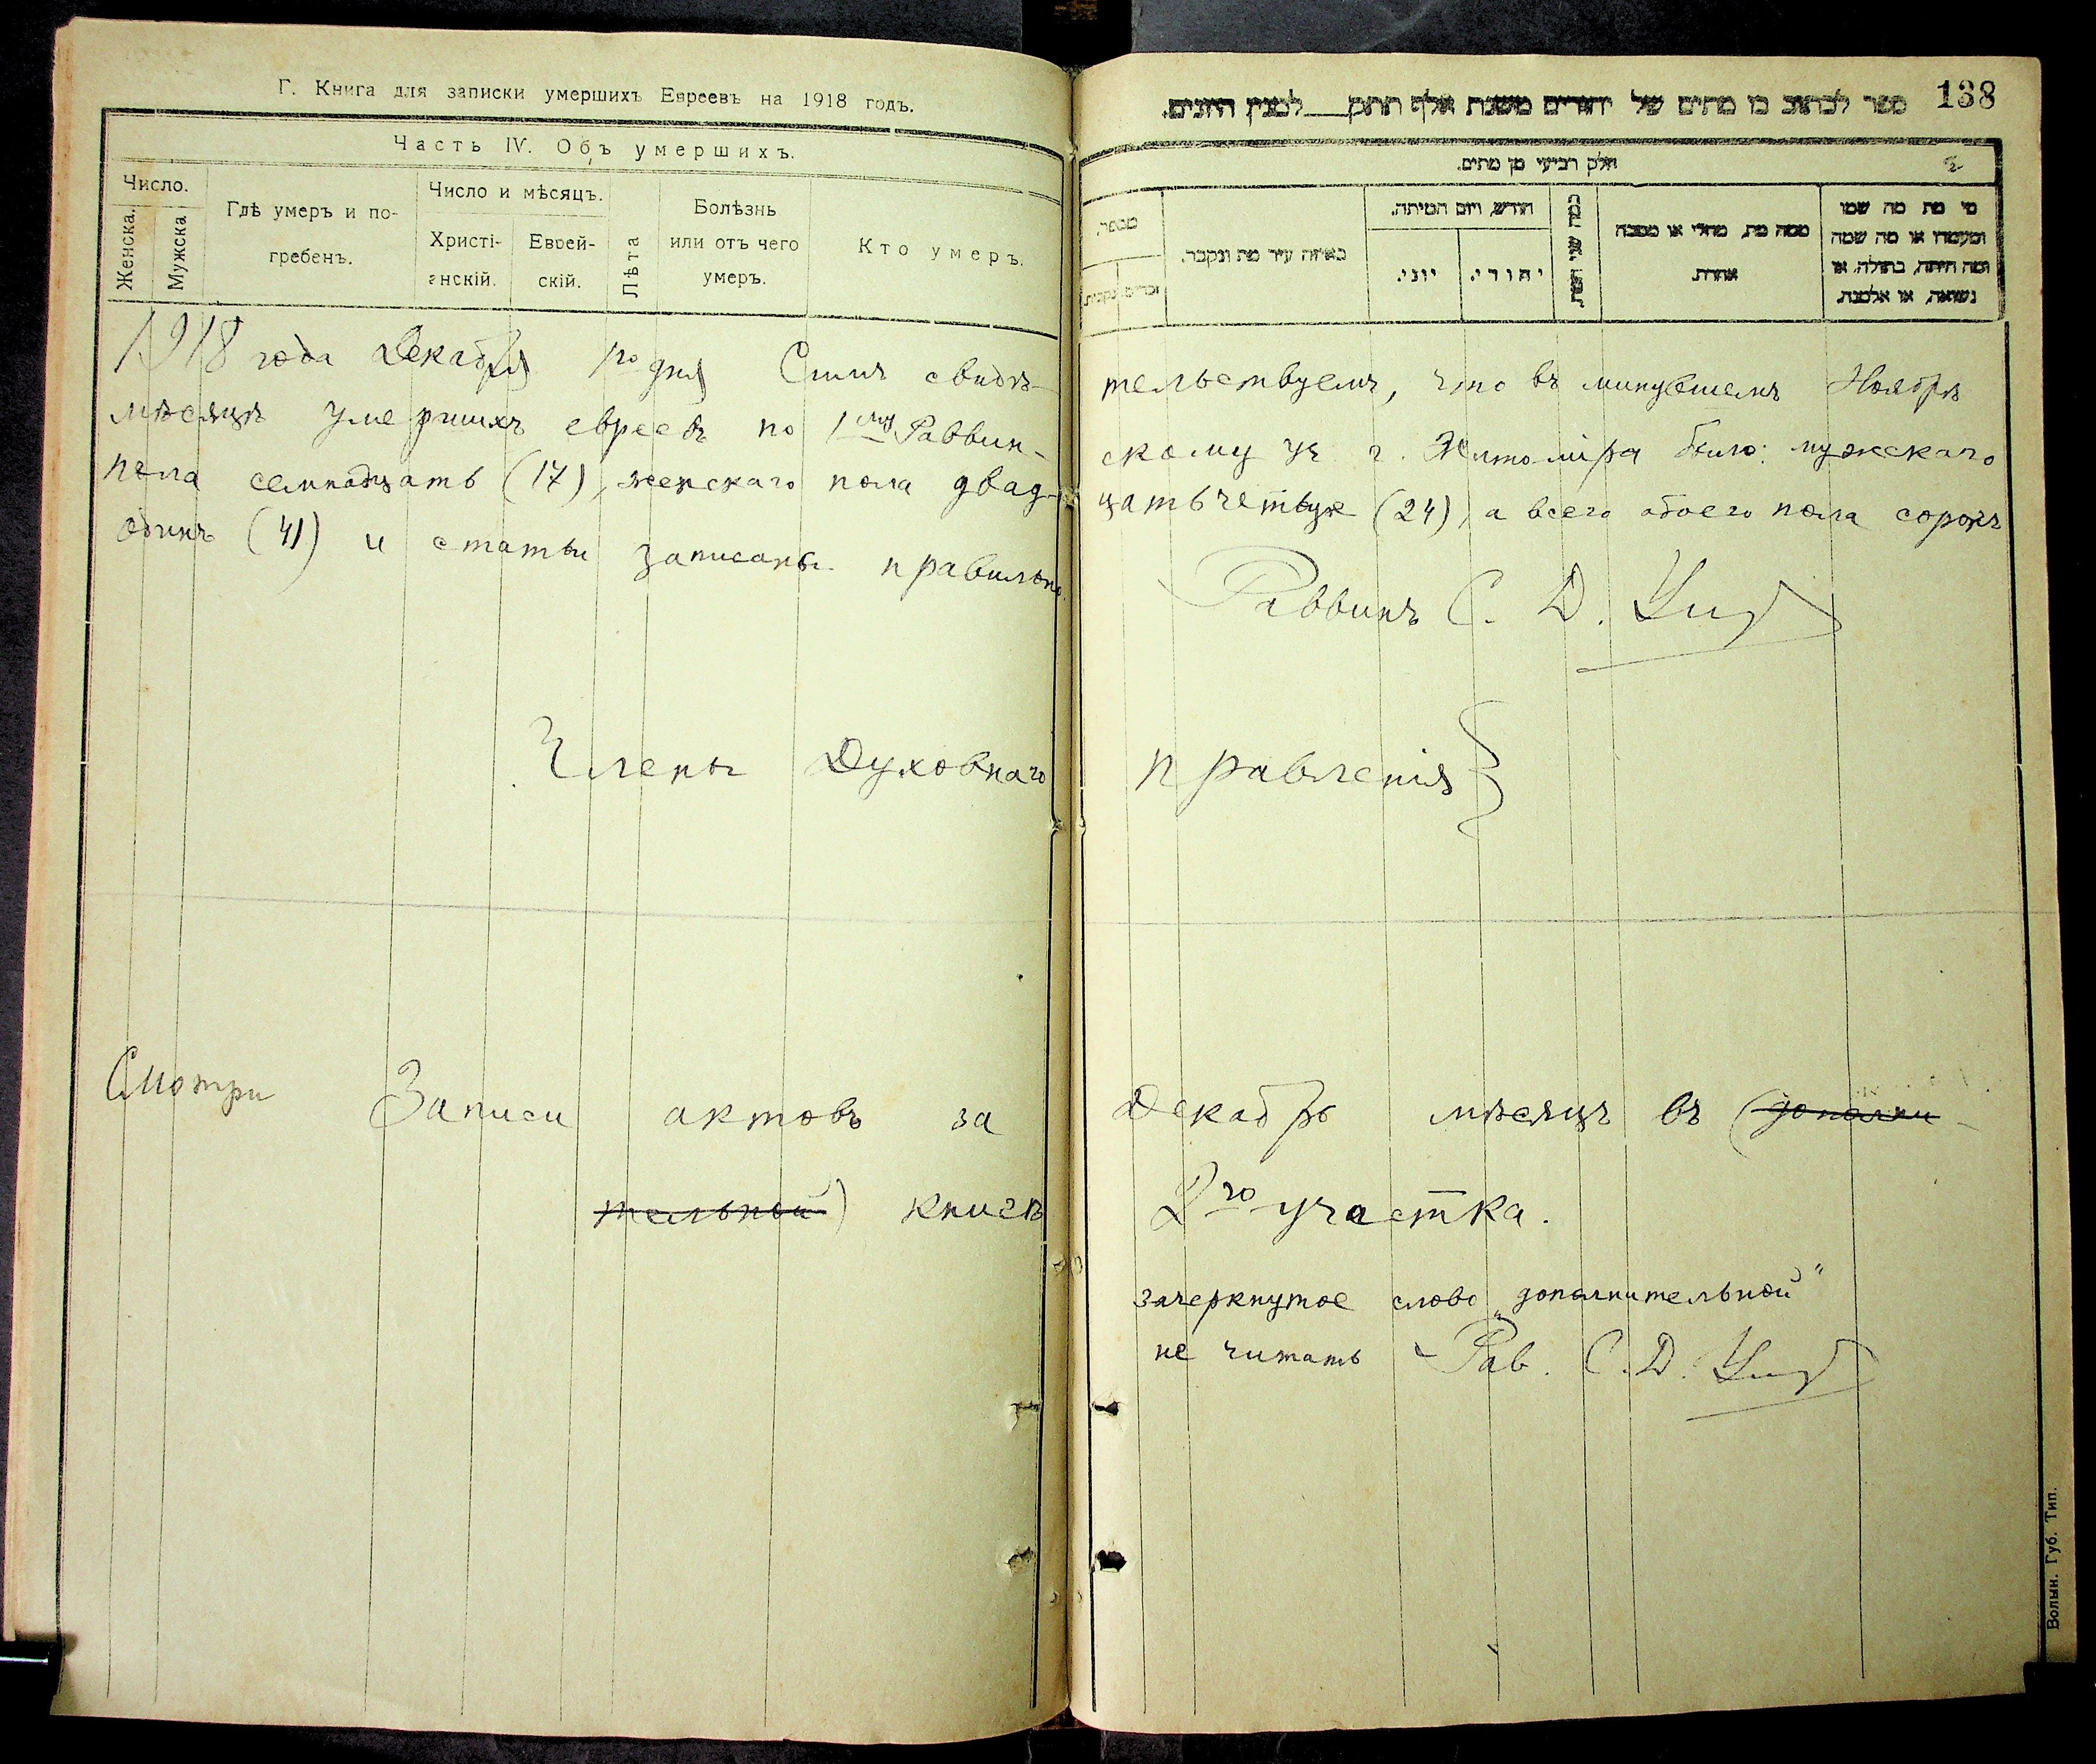 Г. Книга для записки умершихъ Евреевъ на 1918 годъ.
Часть IV. Объ умершихъ.
Число.
Женска.
Мужска
Гдѣ умеръ и по-
гребенъ.
Число и мѣсяцъ.
Христі-
анскій.
Еврей-
скій.
Лѣта
Болѣзнь
или отъ чего
умеръ.
Кто умеръ.
138
ספר לכתוב בו מתים של יהודים משנת אלף תתק___למנין היונים.
חלק רביעי מן מתים.
מספר.
זכרים
נקבות
באיזה עיר מת ונקבר.
חודש, ויום המיתה.
יוני.
יהודי.
כמה שני המת.
ממה מת, מחלי או מסבה
אחרת.
מי מת מה שמו
ומעמדו או מה שמה
ומה היתה, בתולה, או
נשואה, או אלמנה.
1918 года Декабря 1го дня Симъ свидѣ-
тельствуемъ, что въ минувшемъ Ноябрѣ
мѣсяцѣ умершихъ евреевъ по 1му Раввин-
скому уч. г. Житоміра было: мужскаго
пола семнадцать (17), женскаго пола двад-
цать четыре (24), а всего обоего пола сорокъ
одинъ (41) и статьи записаны правильно.
Раввинъ С. Д.
Члены Духовнаго правленія
Смотри Записи актовъ за Декабрь мѣсяцъ въ (дополни-
тельной) книгѣ 2го участка.
зачеркнутое слово „дополнительной"
не читать Рав. С. Д.
Волын. Губ. Тип.